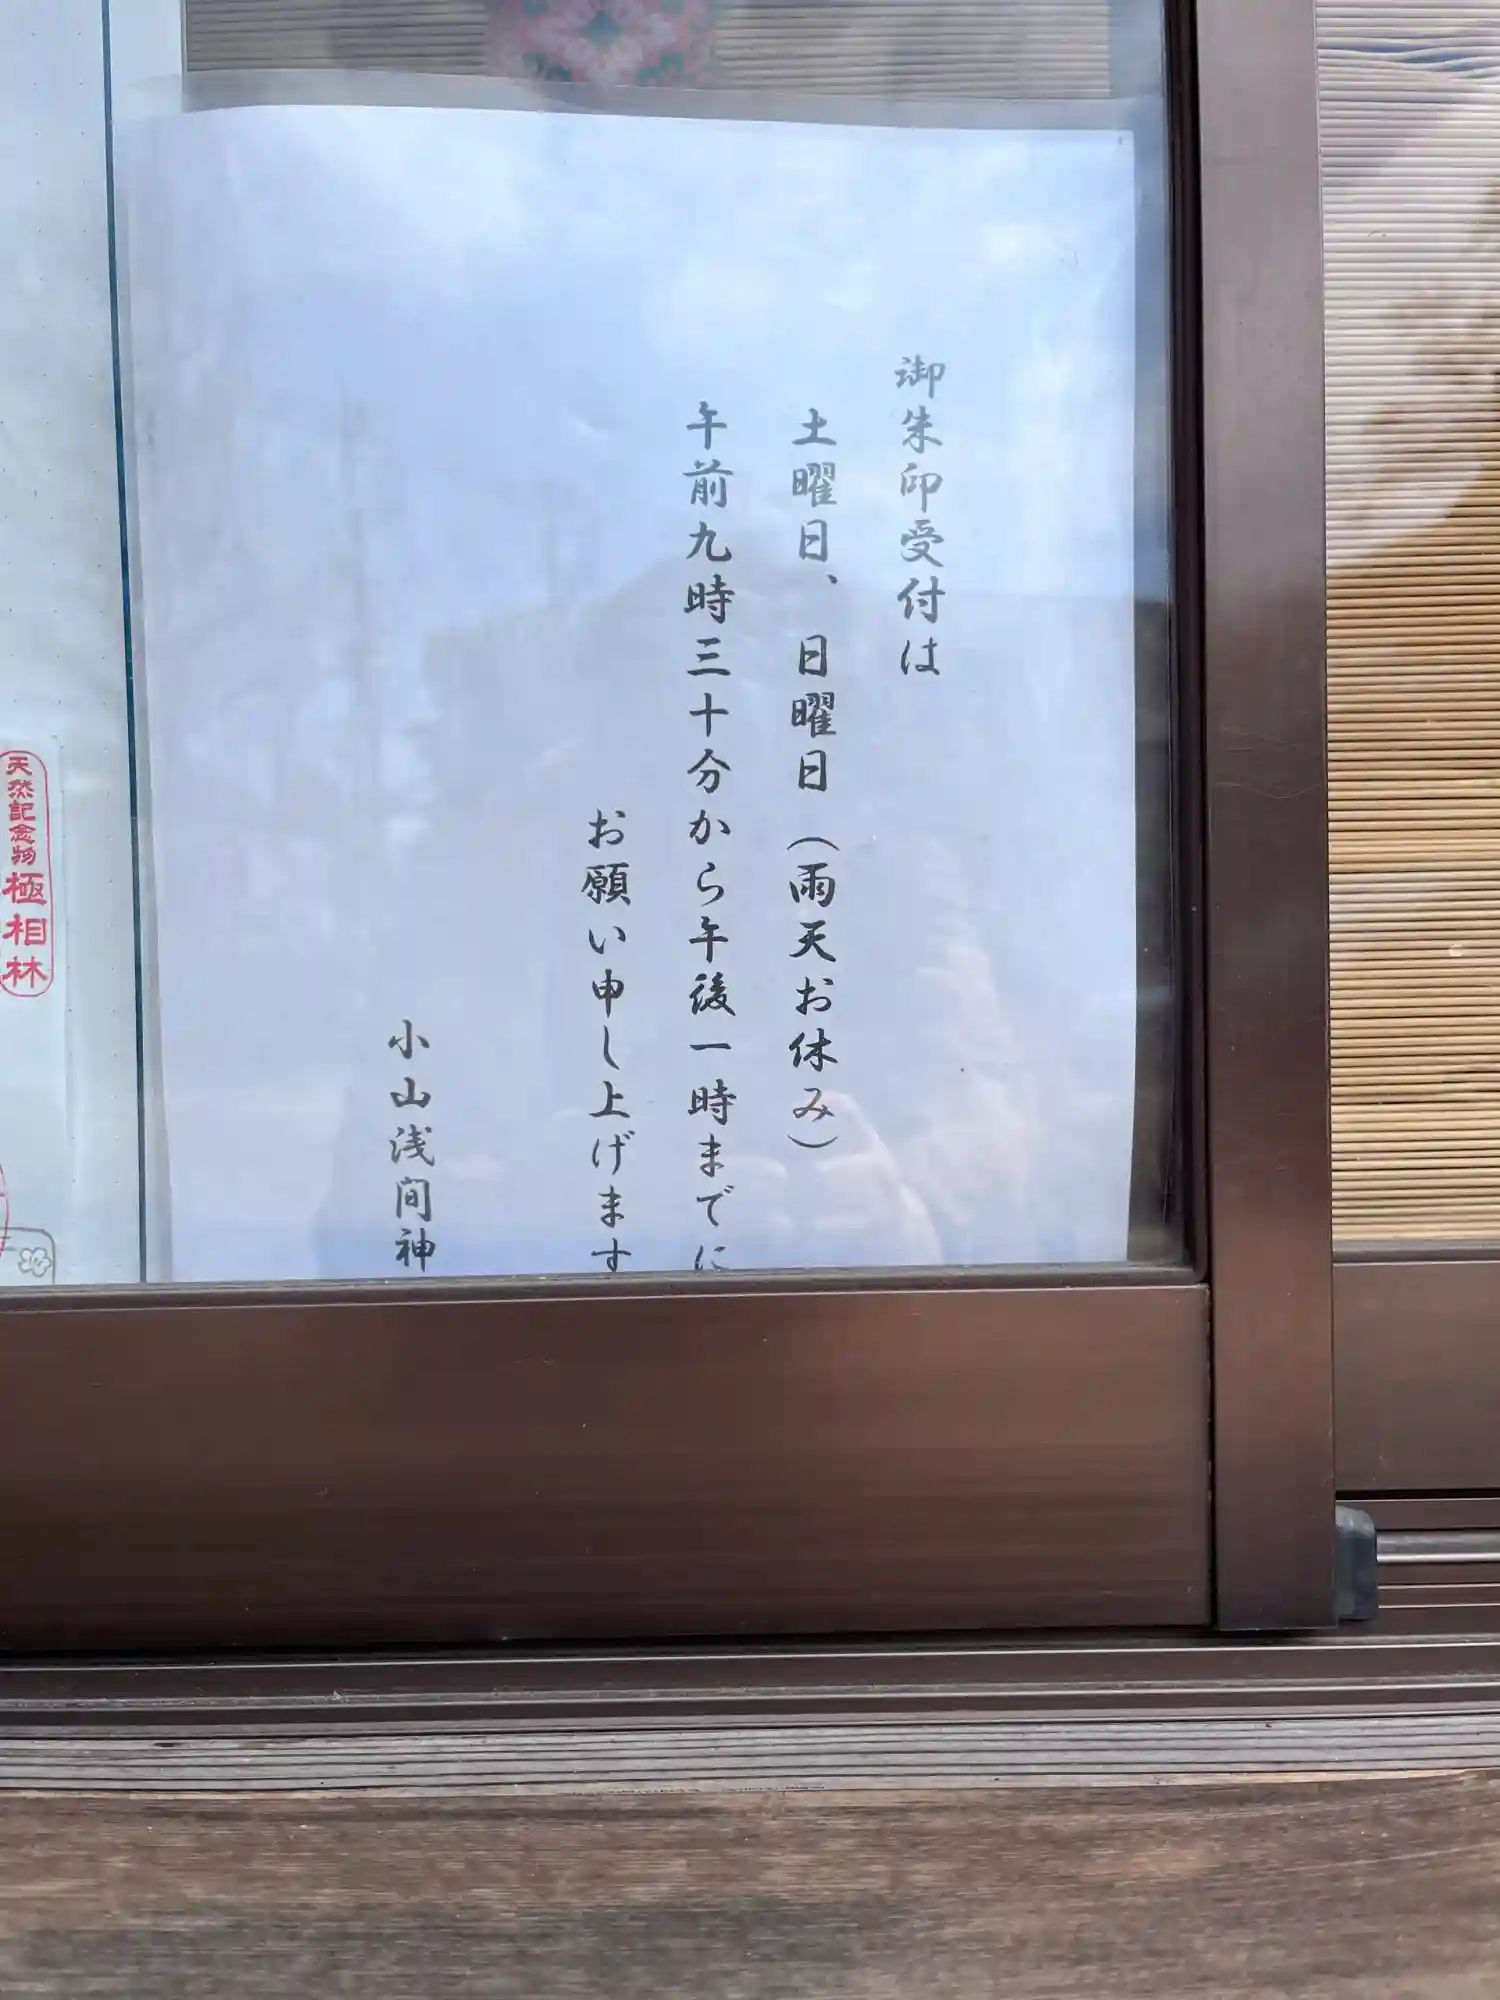 御朱印受付は
土曜日、日曜日（雨天お休み）
午前九時三十分から午後一時までに
お願い申し上げます
小山浅間神
天然記念物 極相林